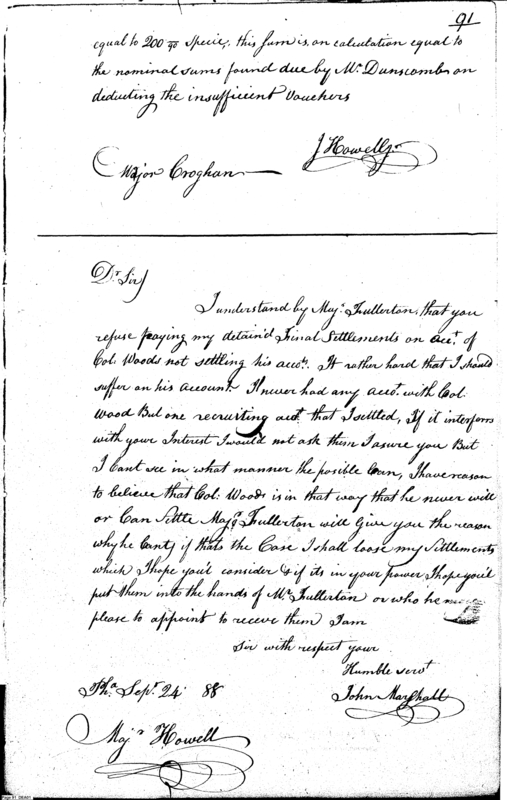 91
equal to 200 90/90 Specie, this sum is, on calculation equal to
the nominal sums found due by Mr Dunscomb on
deducting the insufficient Vouchers
J Howell Jr
Major Croghan
Dr Sir
I understand by Majr. Fullerton, that you
refuse paying my detain'd Final Settlements on acct. of
Col: Woods not settling his accots. It rather hard that I should
suffer on his account. I never had any accot. with Col:
Wood But one recruiting acct that I settled, If it interferrs
with your Interest I would not ask them I asure you But
I Cant see in what manner the posible Can, I have reason
to believe that Col: Woods is in that way that he never will
or Can Settle Majr. Fullerton will Give you the reason
why he Cant, if thats the Case I shall loose my Settlements
which I hope you'l consider & if its in your power I hope you'l
put them into the hands of Mr. Fullerton or who he
please to appoint to receve them I am
Sir with respect your
Humble servt
John Marshall
Pha. Sept. 24 88
Majr Howell